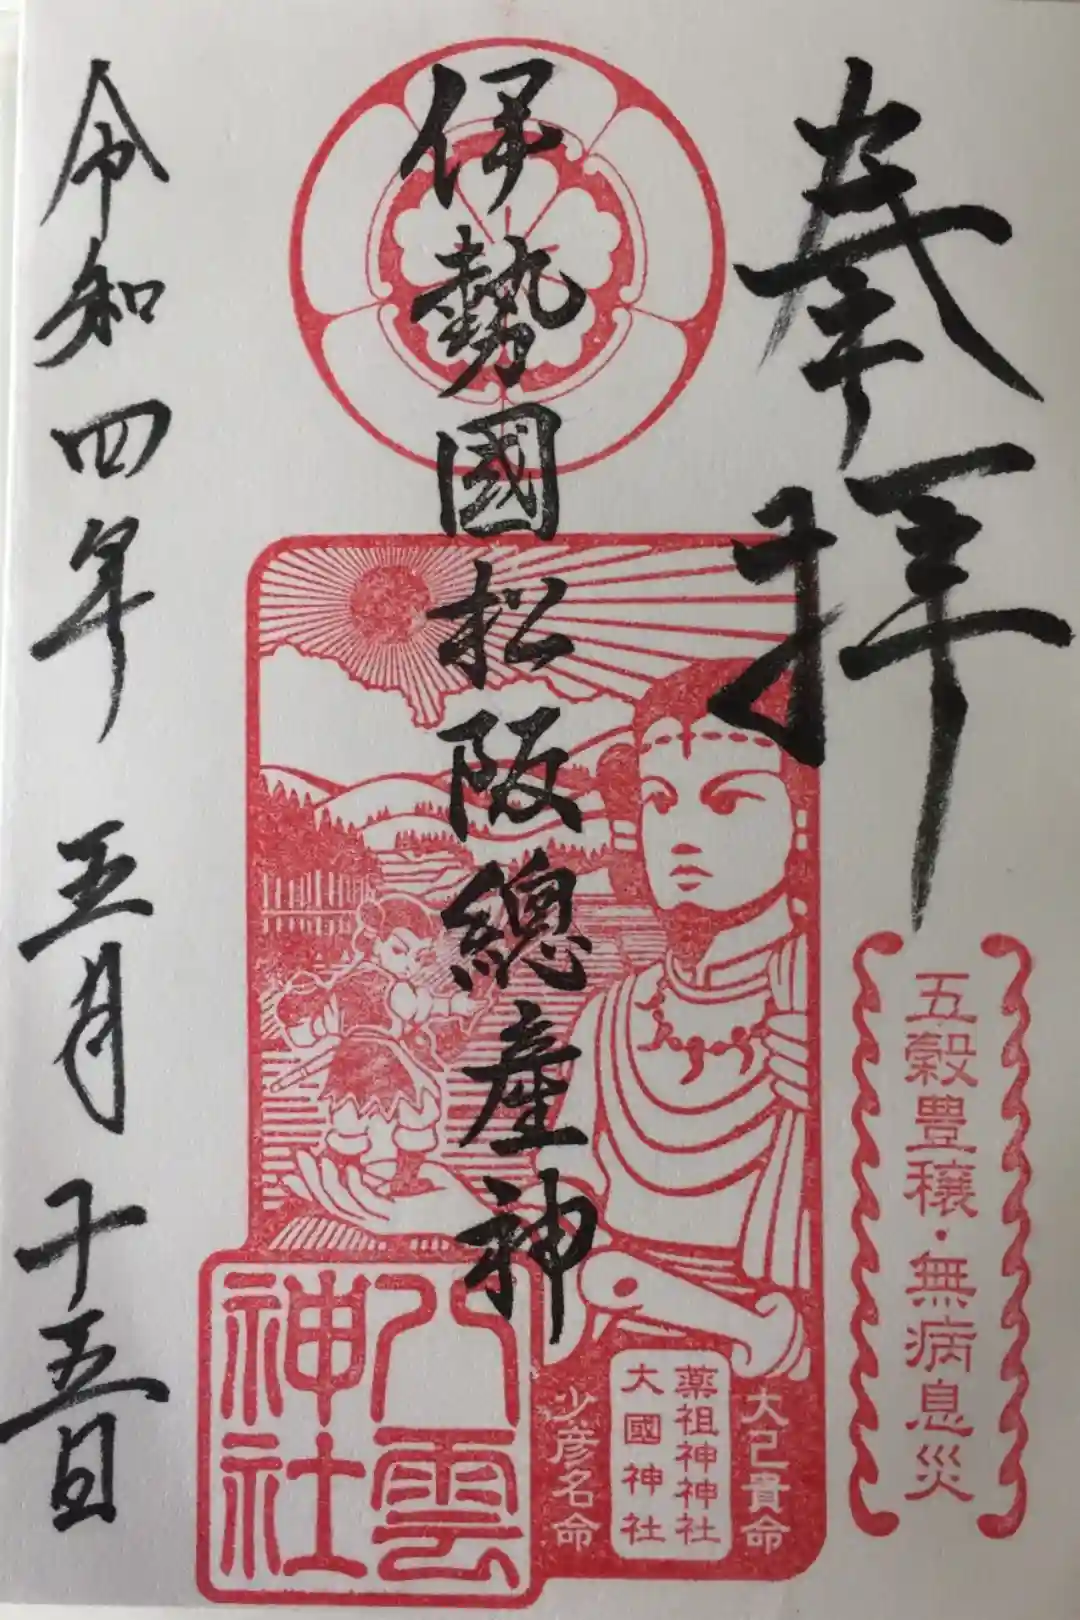 奉拝
五穀豊穣・無病息災
伊勢國松阪總産神
大己貴命
薬祖神神社
大國神社
少彦名命
八雲神社
令和四年 五月 十五日